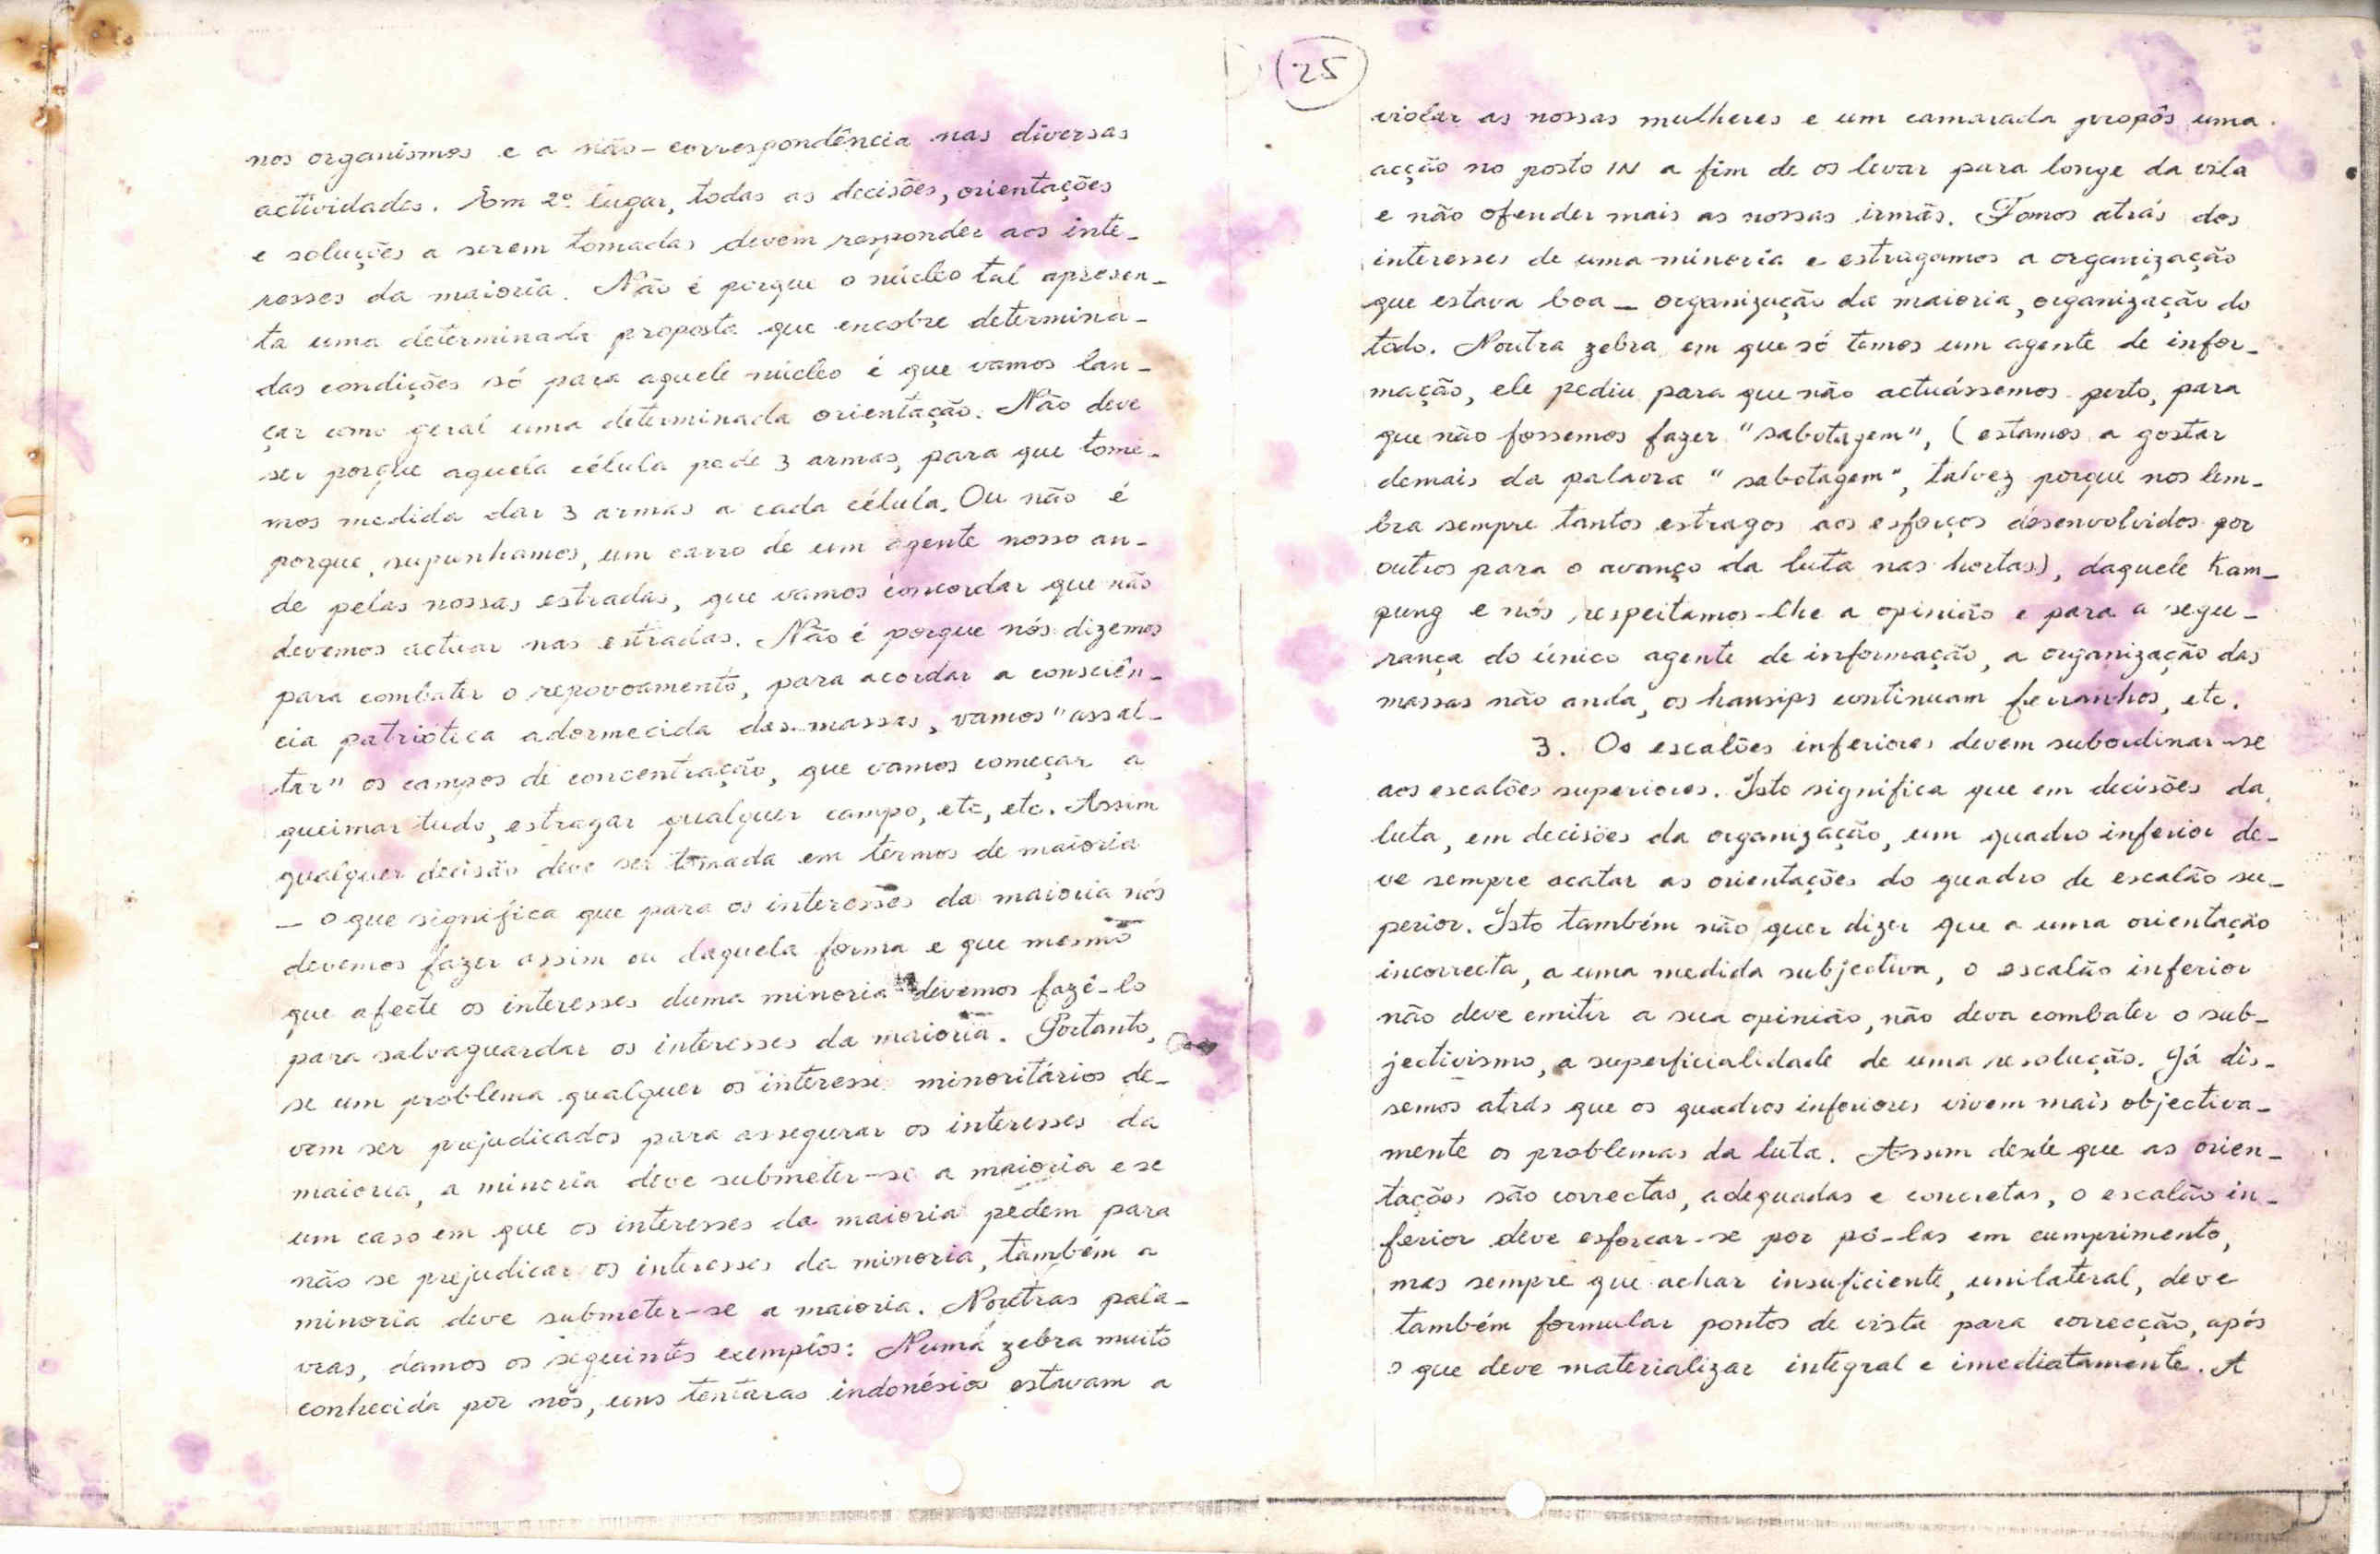 nos organismos e a não-correspondência nas diversas
actividades. Em 2º lugar, todas as decisões, orientações
e soluções a serem tomadas devem responder aos inte-
resses da maioria. Não é porque o núcleo tal apresen-
ta uma determinada proposta que encobre determina-
das condições só para aquele núcleo é que vamos lan-
çar como geral uma determinada orientação. Não deve
ser porque aquela célula pede 3 armas, para que tome-
mos medida dar 3 armas a cada célula. Ou não é
porque, supunhamos, um carro de um agente nosso an-
de pelas nossas estradas, que vamos concordar que não
devemos actuar nas estradas. Não é porque nós dizemos
para combater o repovoamento, para acordar a consciên-
cia patriótica adormecida das massas, vamos "assal-
tar" os campos de concentração, que vamos começar a
queimar tudo, estragar qualquer campo, etc, etc. Assim
qualquer decisão deve ser tomada em termos de maioria
— o que significa que para os interesses da maioria nós
devemos fazer assim ou daquela forma e que mesmo
que afecte os interesses duma minoria devemos fazê-lo
para salvaguardar os interesses da maioria. Portanto,
se um problema qualquer os interesse minoritários de-
vem ser prejudicados para assegurar os interesses da
maioria, a minoria deve submeter-se a maioria e se
um caso em que os interesses da maioria pedem para
não se prejudicar os interesses da minoria, também a
minoria deve submeter-se a maioria. Noutras pala-
vras, damos os seguintes exemplos: Numa zebra muito
conhecida por nós, uns tentaras indonésios estavam a
(25)
violar as nossas mulheres e um camarada propôs uma
acção no posto IN a fim de os levar para longe da vila
e não ofender mais as nossas irmãs. Fomos atrás dos
interesses de uma minoria e estragamos a organização
que estava boa — organização da maioria, organização do
todo. Noutra zebra em que só temos um agente de infor-
mação, ele pediu para que não actuássemos perto, para
que não fossemos fazer "sabotagem", (estamos a gostar
demais da palavra "sabotagem", talvez porque nos lem-
bra sempre tantos estragos aos esforços desenvolvidos por
outros para o avanço da luta nas hortas), daquele kam-
pung e nós respeitamos-lhe a opinião e para a segu-
rança do único agente de informação, a organização das
massas não anda, os hansips continuam ferranhos, etc.
3. Os escalões inferiores devem subordinar-se
aos escalões superiores. Isto significa que em decisões da
luta, em decisões da organização, um quadro inferior de-
ve sempre acatar as orientações do quadro de escalão su-
perior. Isto também não quer dizer que a uma orientação
incorrecta, a uma medida subjectiva, o escalão inferior
não deve emitir a sua opinião, não deva combater o sub-
jectivismo, a superficialidade de uma resolução. Já dis-
semos atrás que os quadros inferiores vivem mais objectiva-
mente os problemas da luta. Assim desde que as orien-
tações são correctas, adequadas e concretas, o escalão in-
ferior deve esforcar-se por pô-las em cumprimento,
mas sempre que achar insuficiente, unilateral, deve
também formular pontos de vista para correcção, após
o que deve materializar integral e imediatamente. A